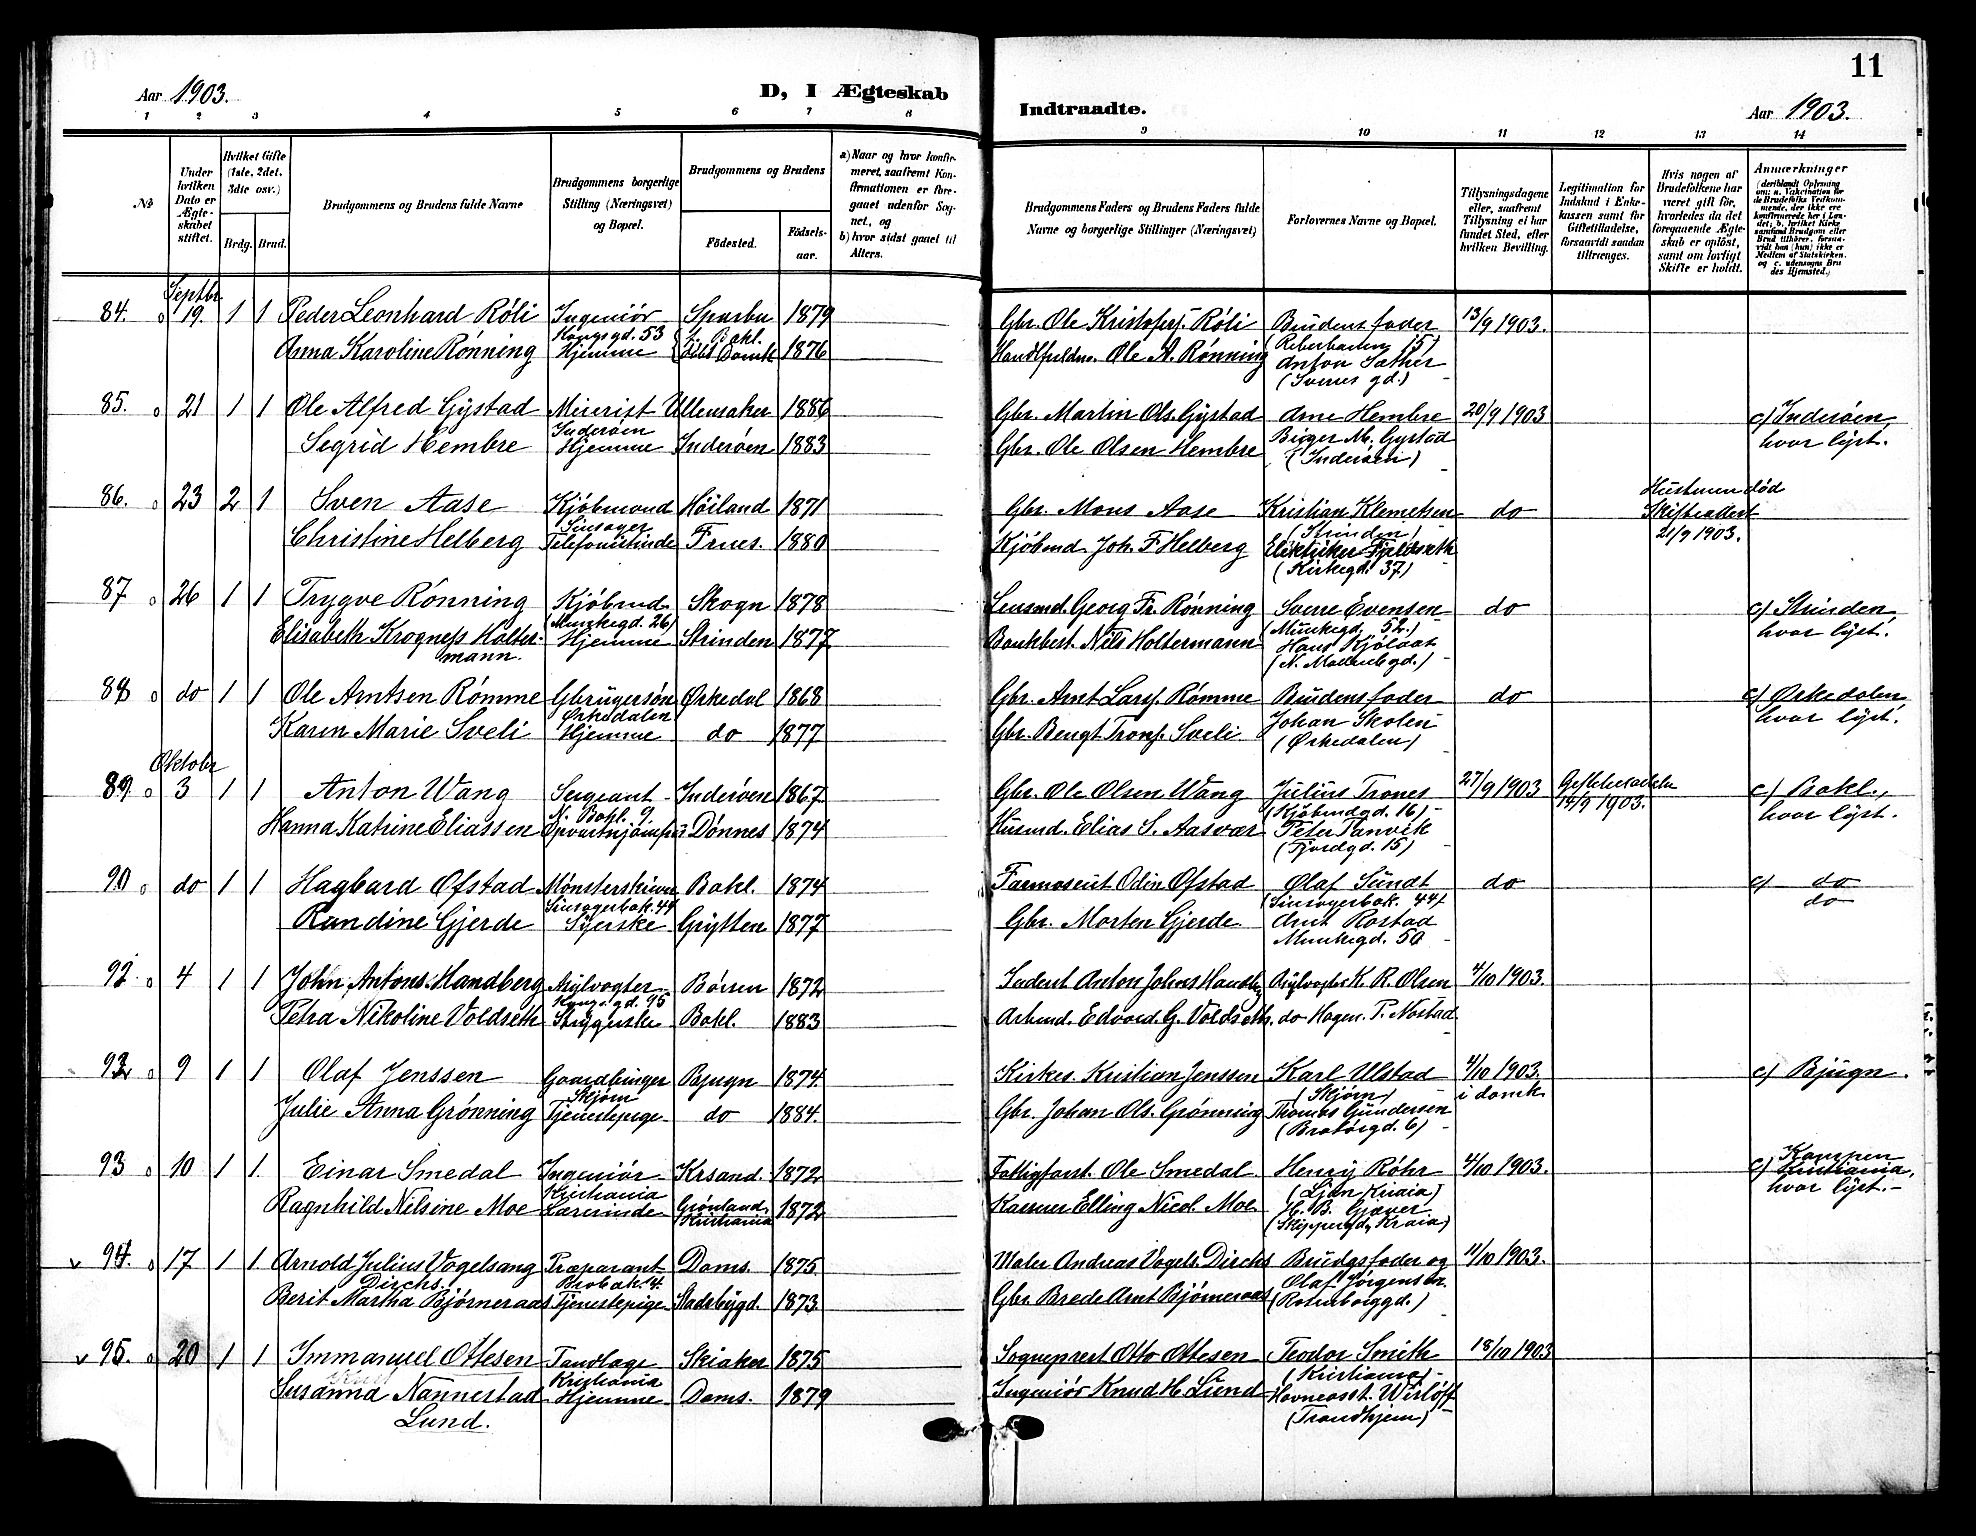 Aar 1903.
D, I Ægteskab
Indtraadte.
11
Aar 1903.
1 2 3 4 5 6 7 8 9 10 11 12 13 14
No
Under hvilken Dato er Ægteskabet stiftet.
Hvilket Gifte (1ste, 2det, 3die osv.)
Brdg. Brud.
Brudgommens og Brudens fulde Navne
Brudgommens borgerlige Stilling (Næringsvei) og Bopæl.
Brudgommens og Brudens
Födested.
Födsels-aar.
a) Naar og hvor konfirmeret, saafremt Konfirmationen er foregaaet udenfor Sognet, og
b) hvor sidst gaaet til Alters.
Brudgommens Faders og Brudens Faders fulde Navne og borgerlige Stillinger (Næringsvei)
Forlovernes Navne og Bopæl.
Tillysningsdagene eller, saafremt Tillysning ei har fundet Sted, efter hvilken Bevilling.
Legitimation for Indskud i Enkekassen samt for Giftetilladelse, forsaavidt saadan tiltrænges.
Hvis nogen af Brudefolkene har været gift för, hvorledes da det foregaaende Ægteskab er oplöst, samt om lovligt Skifte er holdt.
Anmærkninger
84. Septbr. 19. 1 1 Peder Leonhard Róli Ingeniör Sparbu 1879 Gbr. Ole Kristofers. Róli Brudens fader 13/9 1903.
Kongsgd. 53 Bakl. (Reberbanen 15)
Anna Karoline Rønning Hjemme 1876 Ole A. Rønning Anton Sæther
(Sverres gd.)
85. 21 1 1 Ole Alfred Gystad Meierist Ullensaker 1886 Gbr. Martin Ols. Gystad Arne Hembre 20/9 1903 c) Inderøen,
Inderøen Birger M. Gystad hvor lyst.
Segrid Hembre Hjemme Inderøen 1883 Gbr. Ole Olsen Hembre (Inderøen)
86. 23 2 1 Sven Aase Kjøbmand Höiland 1871 Gbr. Mons Aase Kristian Klemetsen do Hustruen död
Sinsager (Strinden) Skifteattest
Christine Helberg Telefonistinde Frues. 1880 Kjøbmd. Joh. F. Helberg Elektriker Fjeldseth 21/9 1903.
(Kirkegd. 37)
87 26 1 1 Trygve Rønning Kjøbmd. Skogn 1878 Lensmd. Georg Fr. Rønning Sverre Evensen do c) Strinden,
(Munkegd. 26) (Munkegd. 52.) hvor lyst.
Elisabeth Krogness Holter- Hjemme Strinden 1877 Bankbest. Nils Holtermann Hans
mann.
88 do 1 1 Ole Arntsen Rømme Gbrugersøn Ørkedal 1868 Gbr. Arnt Lars. Rømme Brudens fader do c) Ørkedalen,
Ørkedalen Johan Skolen hvor lyst.
Karen Marie Sveli Hjemme do 1877 Gbr. Bengt Trons. Sveli. (Ørkedalen)
89. Oktober 3 1 1 Anton Wang Sergeant Inderøen 1867 Gbr. Ole Olsen Wang Julius Trones 27/9 1903 Giftetilladelse c) Bakl.,
N. Bakl. 9. (Kjøbmdgd. 16) 14/9 1903. hvor lyst.
Hanna Katrine Eliassen Opvartnjomfru Dønnes 1874 Husmd. Elias S. Aasvær Peter Tanvik
(Fjordgd. 15)
90 do 1 1 Hagbard Øfstad Mønsterskriver Bakl. 1874 Odin Øfstad Olaf Sundt do c) do
Sinsagerbak. 44 (Sinsagerbak. 44) do
Randine Gjerde Syerske Grytten 1877 Gbr. Morten Gjerde Arnt Rostad
Munkegd. 50
91. 4 1 1 John Antons. Handberg Asylvogter Börsen 1872 Anton Johns. Handbg. Asylvogter K. R. Olsen 4/10 1903.
Kongs. gd. 95
Petra Nikoline Voldseth Strygerske Bakl. 1883 Arbmd. Edvard G. Voldseth. do Hagen P. Nostad
92 9 1 1 Olaf Jenssen Gaardbruger Bjugn 1874. Kirkes. Kristian Jenssen Karl Ulstad 4/10 1903. c) Bjugn.
Skjørn (Skjørn) i domk.
Julie Anna Grønning Tjenestepige do 1884. Gbr. Johan Ols. Grønning Thomas Gundersen
(Bratörgd. 6)
93 10 1 1. Einar Smedal Ingeniör Krsand. 1872 Fattigforst. Ole Smedal Henry Röhr 4/10 1903. c) Kampen
Kristiania (Ljan Kraia) Kristiania,
Ragnhild Nilsine Moe Lærerinde Grønland, Kristiania 1872 Kasserer Elling Nicol. Moe H. B. Gjæver hvor lyst.
(Skippergd. Kraia)
v 94. 17 1 1. Arnold Julius Vogelsang Præparant Doms. 1875. Maler Andreas Vogels. Dirchs Brudgsfader og 11/10 1903.
Dirchs. Brobak. 4 Olaf Jørgensen.
Berit Martha Bjørneraas Tjenestepige Stadsbygd. 1873. Gbr. Brede Arnt Bjørneraas (Rosenborggd.)
v 95. 20 1 1 Immanuel Ottesen Tandlæge Skiaker 1875 Sogneprest Otto Ottesen Teodor Smith 18/10 1903
Kristiania (Kristiania)
Susanna Nannestad Hjemme Doms. 1879 Ingeniör Knud H. Lund Havneasst. Wirlöff
Lund. (Trondhjem)